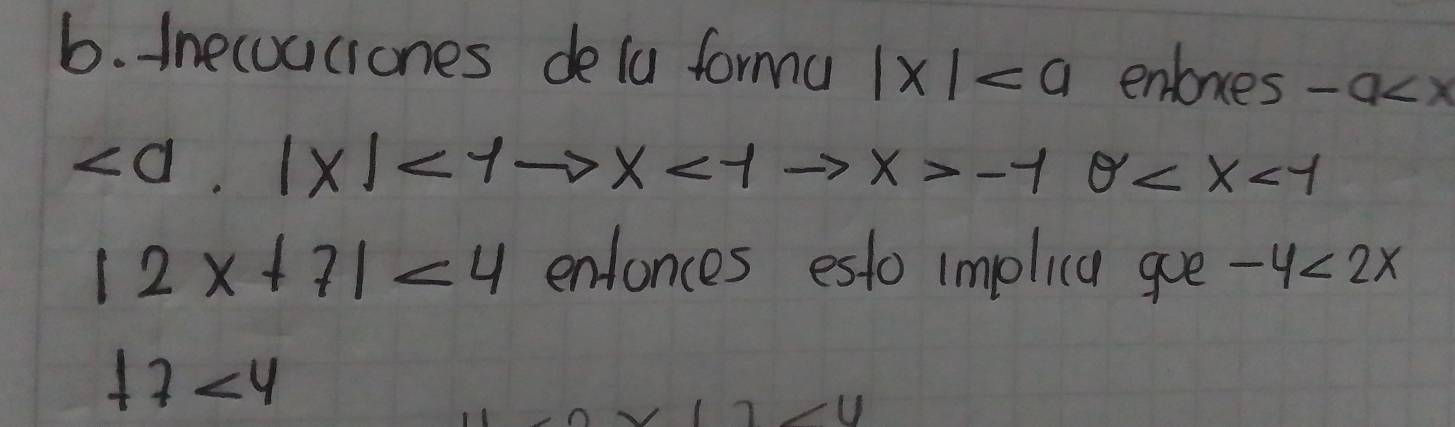 b. Inecuaciones de la forma |x| < a entonces -a<x
<a. |x| < 1 → x < 1 → x > -1 0 < x < 1
|2x+7| < 4 entonces esto implica que -4<2x
+7<4